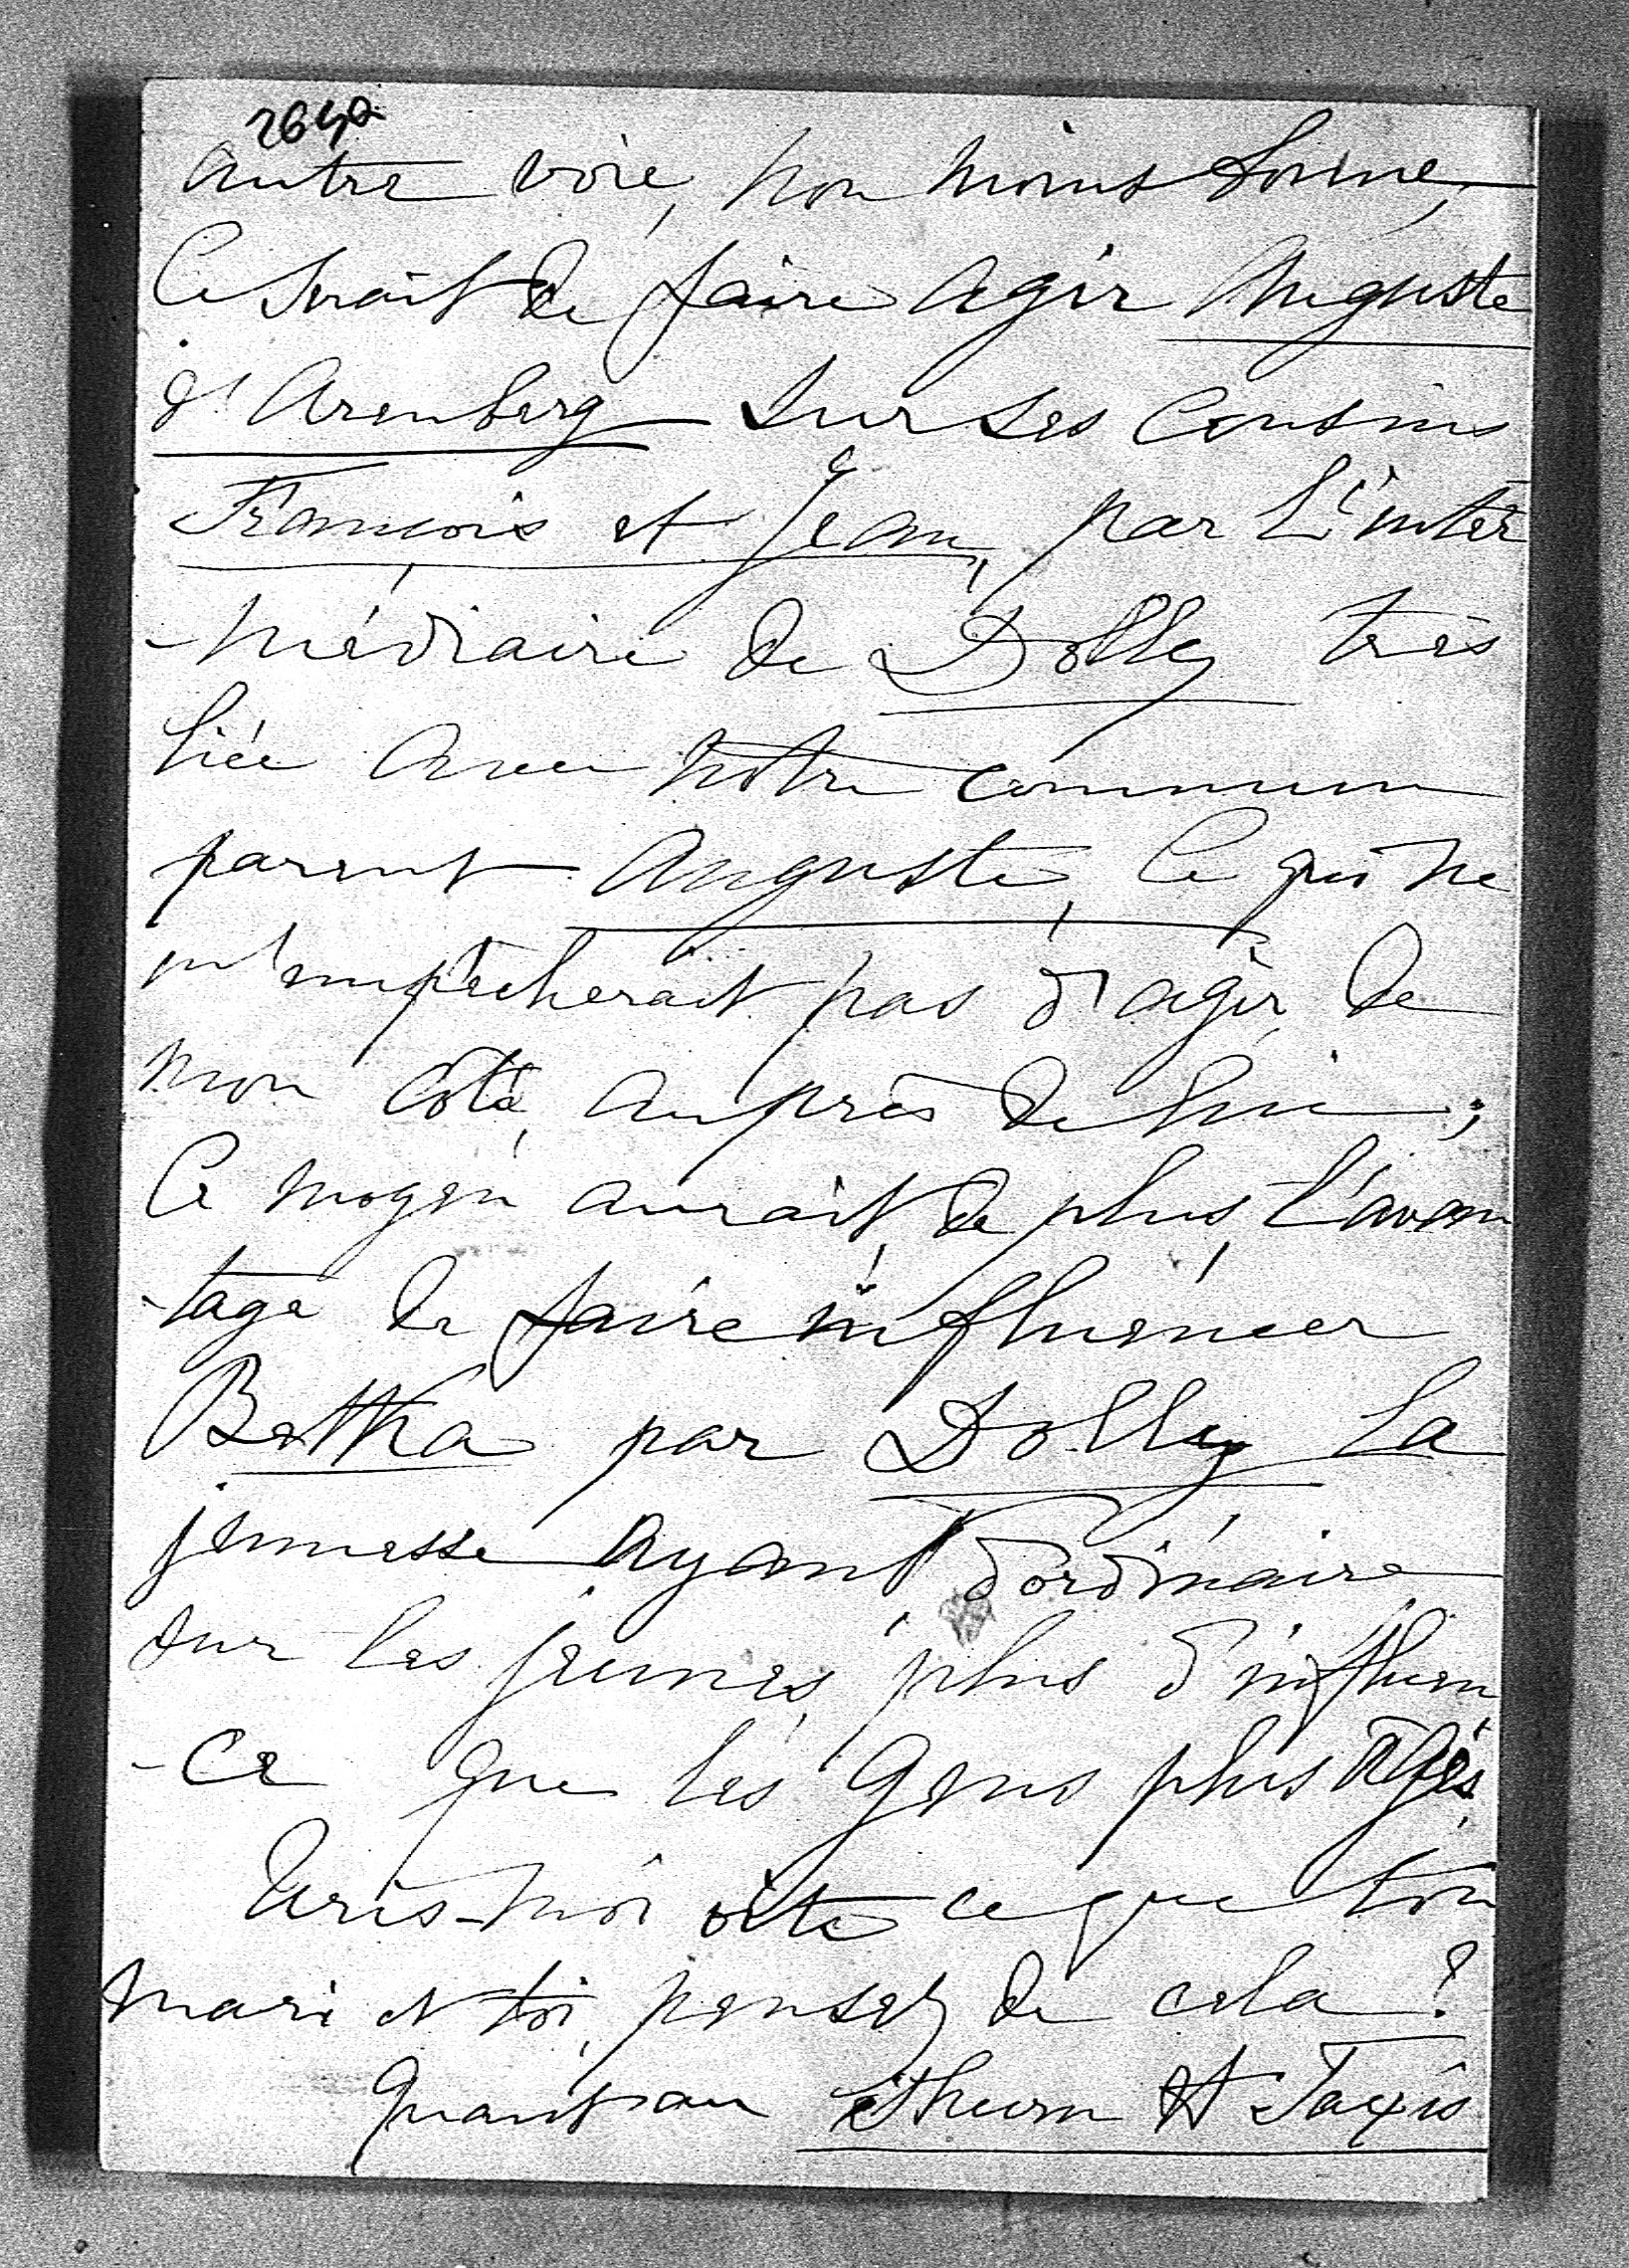 autre voie, non moins bonne,
Ce serait de faire agir Auguste
d'Arenberg sur ses Cousins
François et Jean, par l'inter
-médiaire de Dolly très
liée avec notre commun
parent Auguste, Ce qui ne
m'empêcherait pas d'agir de
mon côté, auprès de lui;
Ce moyen aurait, de plus, l'avan
-tage de faire influencer
Betka par Dolly la
jeunesse ayant d'ordinaire
sur les jeunes, plus d'influen
-ce que les gens plus âgés.
Écris-moi vite ce que ton
mari et toi, pensez de cela?
Quant au Thurn et Taxis